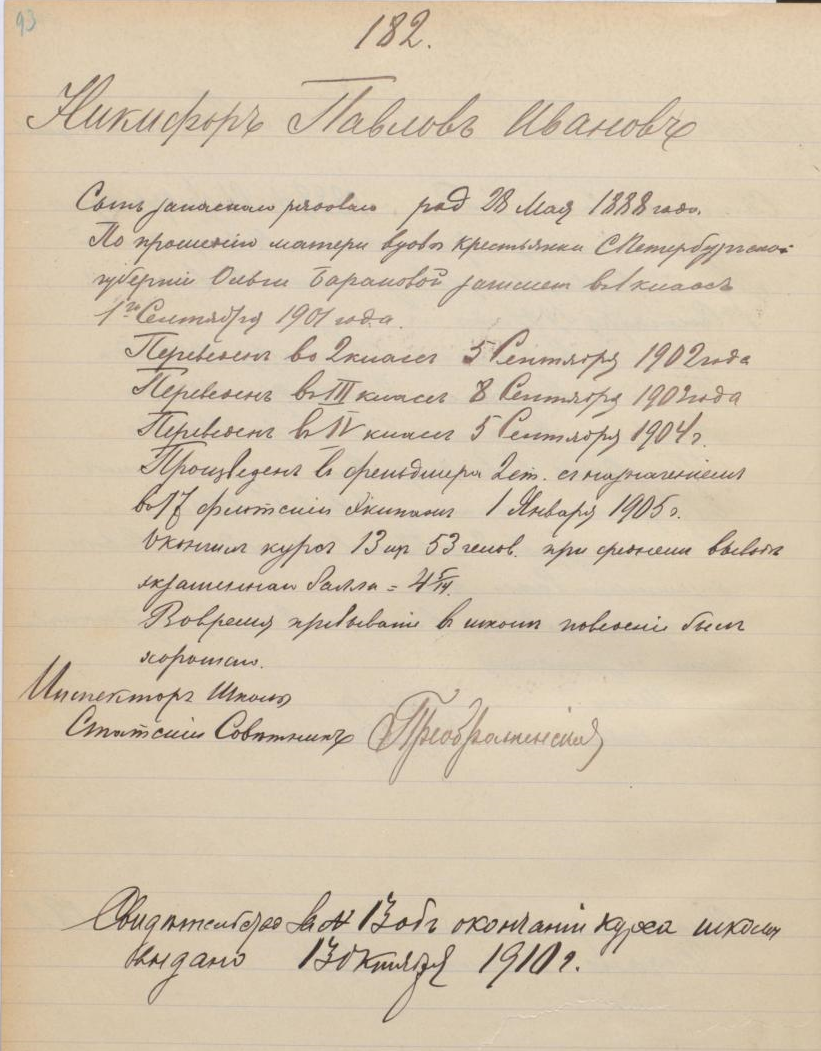 93
182.
Никифоръ Павловъ Ивановъ
Сынъ запаснаго рядоваго род 28 Мая 1888 года.
По прошенію матери вдовы крестьянки СПетербургской
губерніи Ольги Барановой зачислен в 1 классъ
1го Сентября 1901 года.
Переведенъ во 2 классъ 5 Сентября 1902 года
Переведенъ въ III классъ 8 Сентября 1902 года
Переведенъ въ IV классъ 5 Сентября 1904 г.
Произведенъ въ фельдшера 2 ст. съ назначеніемъ
въ 17 флотскій Экипажъ 1 Января 1905 г.
Окончилъ курсъ 13 из 53 челов. при среднем выводѣ
экзаменнаго балла = 4
Во время пребыванія в школѣ поведенія былъ
хорошаго.
Инспекторъ Школы
Статскій Совѣтникъ Преображенскій
Свидѣтельство за № 13 объ окончаніи курса школы
выдано 13 Октября 1910 г.